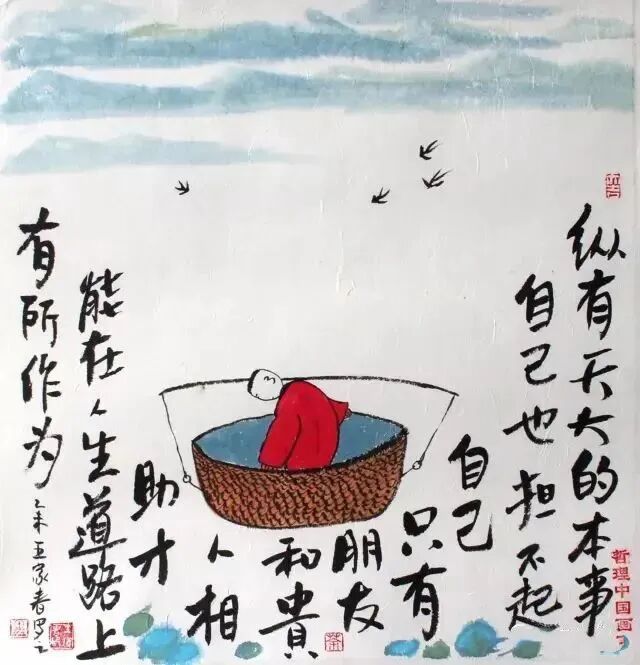 纵有天大的本事
自己也担不起
自己
只有
朋友
和貴
人相
助才
能在人生道路上
有所作为
乙未王家春
哲理中国画